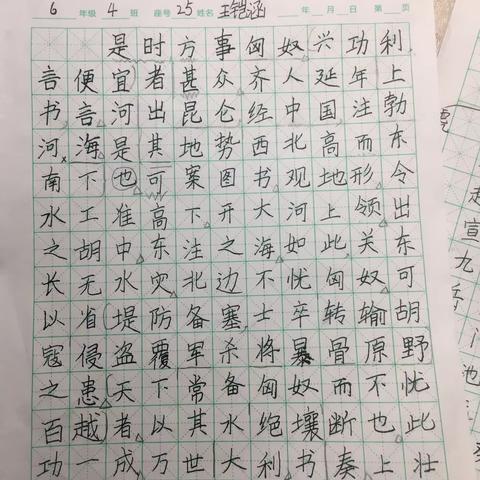 6 年级 4 班 座号 25 姓名 王铠涵 年 月 日 第 页
是时方事匈奴兴功利
言便宜者甚众齐人延年上
书言河出昆仑经中国注勃
河海是其地势西北高而东
南下也可案图书观地形令
水工准高下开大河上领出
之胡中东注之海如此关东
长无水灾北边不忧匈奴可
以省堤防备塞士卒转输胡
寇侵盗覆军杀将暴骨原野
之患天下常备匈奴而不忧
百越者以其水绝壤断也此
功一成万世大利书奏上壮
赵
宣
九
池